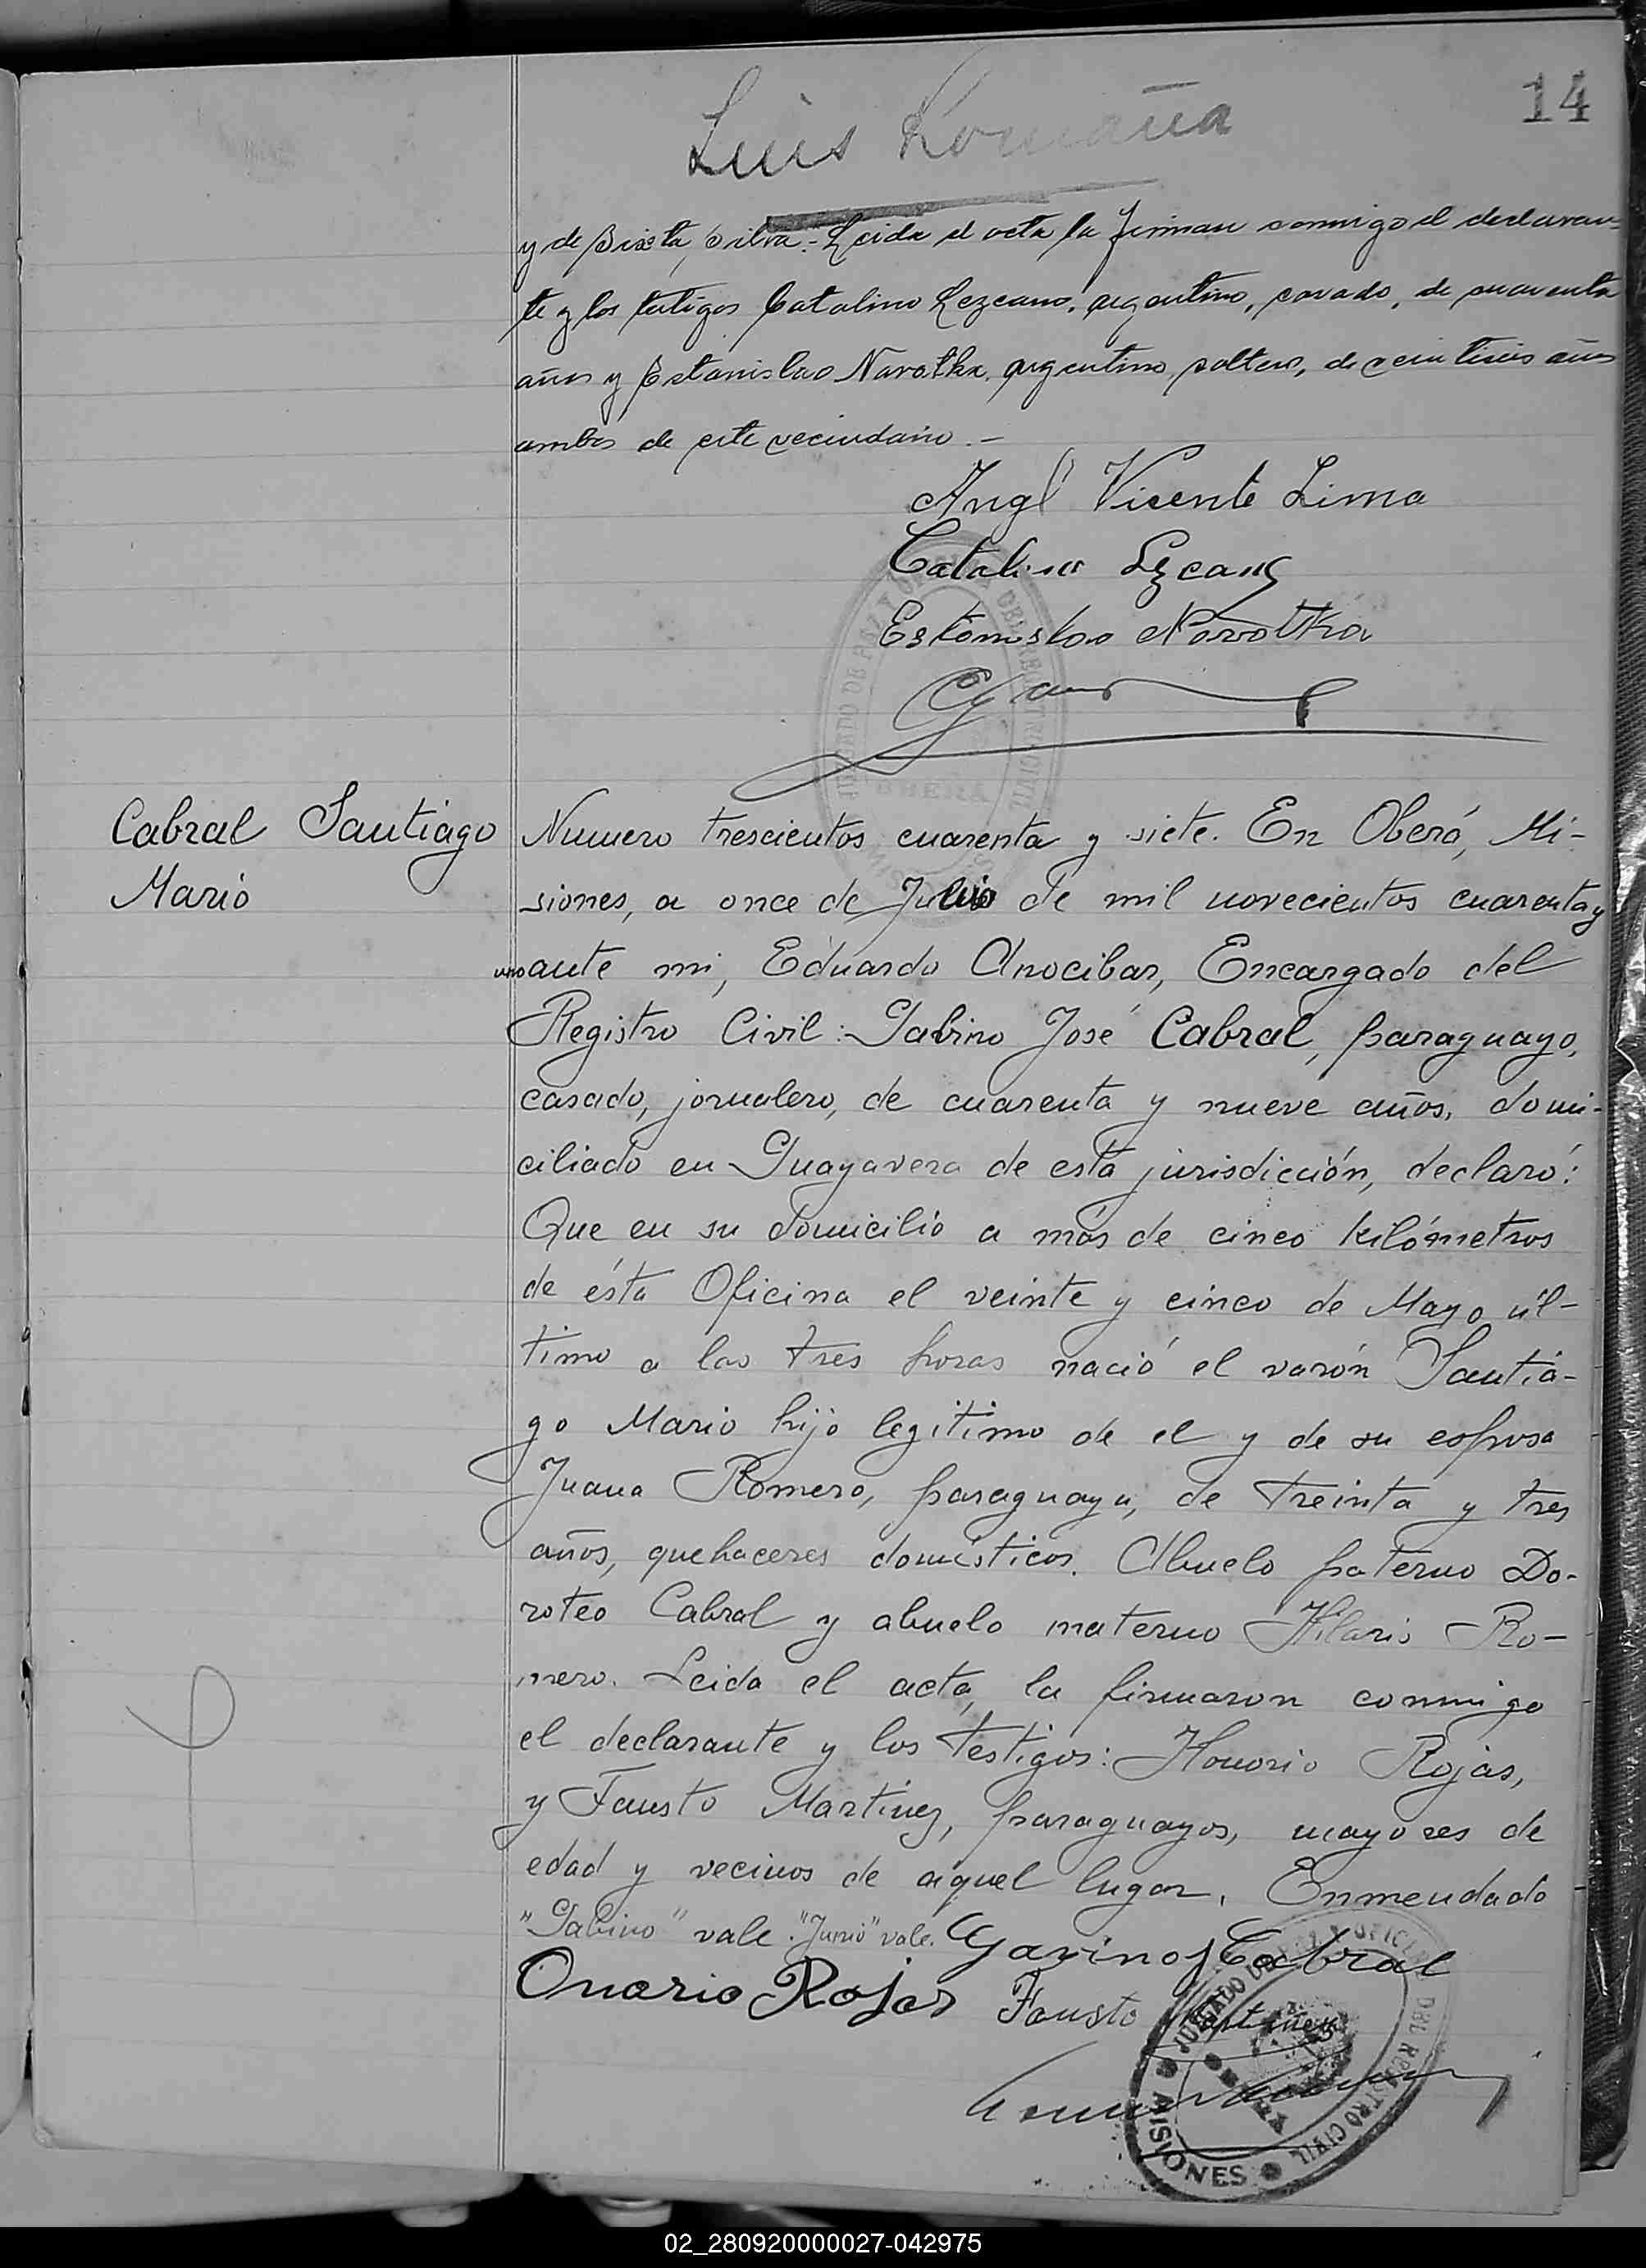 14
Luis Romaña
y de Sixta Silva.- Leida el acta la firman conmigo el declaran-
te y los testigos Catalino Lezcano, argentino, casado, de cuarenta
años y Estanislao Navotka, argentino, soltero, de veintiseis años
ambos de este vecindario.-
Angl Vicente Lima
Catalino Lezcano
Estanislao Navotka
Cabral Santiago
Mario
Numero trescientos cuarenta y siete. En Oberá, Mi-
siones, a once de Junio de mil novecientos cuarenta y
uno ante mi, Eduardo Anocibar, Encargado del
Registro Civil: Gabino José Cabral, paraguayo,
casado, jornalero, de cuarenta y nueve años, domi-
ciliado en Guayavera de esta jurisdicción, declaró:
Que en su domicilio a más de cinco kilómetros
de ésta Oficina el veinte y cinco de Mayo úl-
timo a las tres horas nació el varón Santia-
go Mario hijo legitimo de el y de su esposa
Juana Romero, paraguaya, de treinta y tres
años, quehaceres domésticos. Abuelo paterno Do-
roteo Cabral y abuelo materno Hilario Ro-
mero. Leida el acta, la firmaron conmigo
el declarante y los testigos: Honorio Rojas,
y Fausto Martinez, paraguayos, mayores de
edad y vecinos de aquel lugar. Enmendado
"Gabino" vale. "Junio" vale. Gavino J Cabral
Onario Rojas Fausto Martinez
JUZGADO DE PAZ Y OFICINA DEL REGISTRO CIVIL
OBERA
MISIONES
02_280920000027-042975